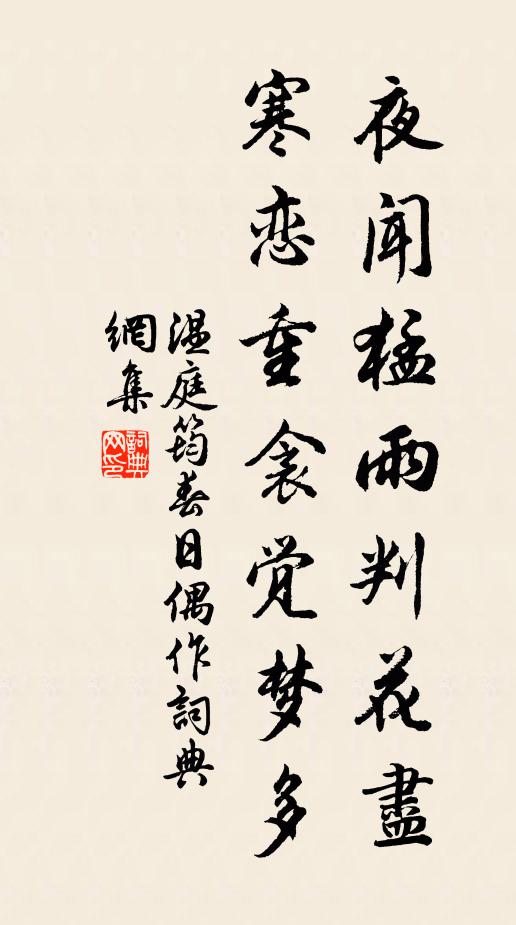 夜闻猛雨判花盡
寒恋重衾觉梦多
温庭筠春日偶作詞典
網集
詞典网印